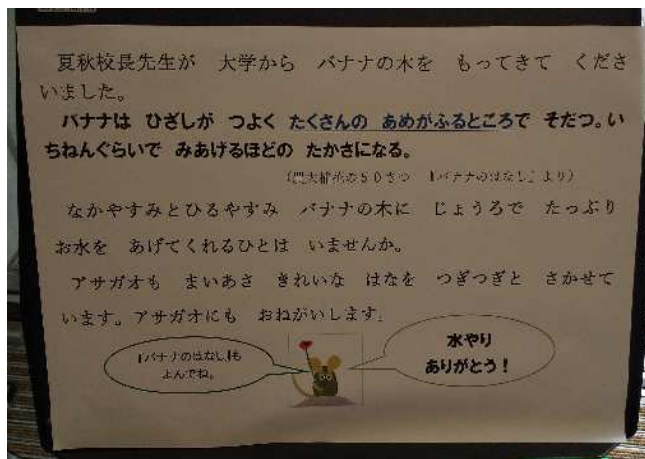 夏秋校長先生が 大学から バナナの木を もってきて くださ
いました。
バナナは ひざしが つよく たくさんの あめがふるところで そだつ。い
ちねんぐらいで みあげるほどの たかさになる。
の50さつ 『バナナのはなし』より)
なかやすみとひるやすみ バナナの木に じょうろで たっぷり
お水を あげてくれるひとは いませんか。
アサガオも まいあさ きれいな はなを つぎつぎと さかせて
います。アサガオにも おねがいします。
『バナナのはなし』も
よんでね。
水やり
ありがとう!